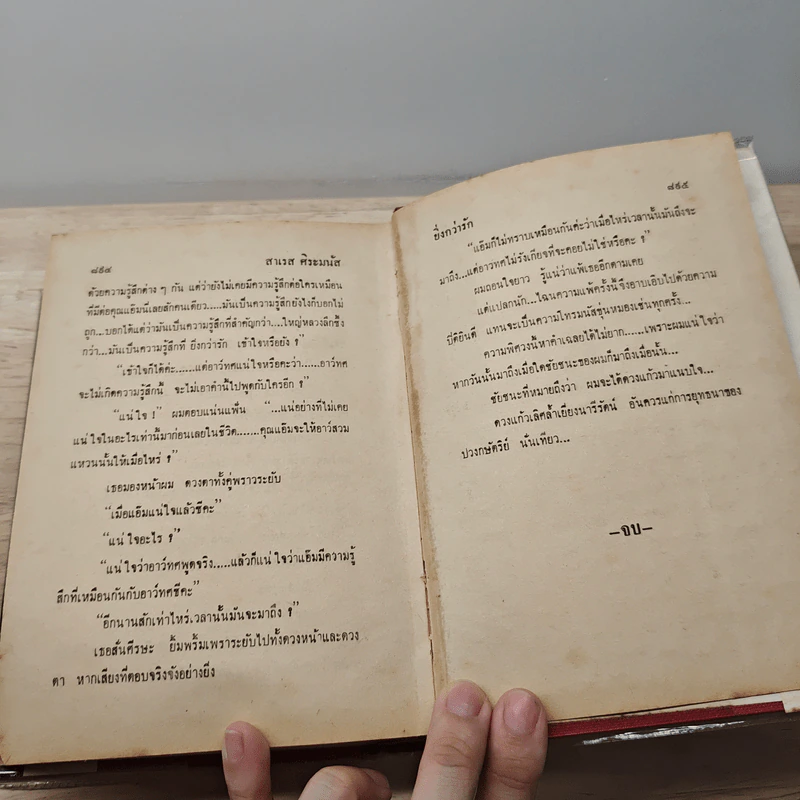 ๘๙๔ สาเรส ศิระมนัส
ด้วยความรู้สึกต่าง ๆ กัน แต่ว่ายังไม่เคยมีความรู้สึกต่อใครเหมือน
ที่มีต่อคุณแอ๊มนี่เลยสักคนเดียว.....มันเป็นความรู้สึกยังไงก็บอกไม่
ถูก...บอกได้แต่ว่ามันเป็นความรู้สึกที่สำคัญกว่า....ใหญ่หลวงลึกซึ้ง
กว่า...มันเป็นความรู้สึกที่ ยิ่งกว่ารัก เข้าใจหรือยัง ?”
“เข้าใจก็ได้ค่ะ......แต่อาว์ทศแน่ใจหรือคะว่า......อาว์ทศ
จะไม่เกิดความรู้สึกนี้ จะไม่เอาคำนี้ไปพูดกับใครอีก ?”
“แน่ใจ !” ผมตอบแน่นแฟ้น “...แน่อย่างที่ไม่เคย
แน่ใจในอะไรเท่านี้มาก่อนเลยในชีวิต.......คุณแอ๊มจะให้อาว์สวม
แหวนนั้นให้เมื่อไหร่ ?”
เธอมองหน้าผม ดวงตาทั้งคู่พราวระยับ
“เมื่อแอ๊มแน่ใจแล้วซีคะ”
“แน่ใจอะไร ?”
“แน่ใจว่าอาว์ทศพูดจริง.....แล้วก็แน่ใจว่าแอ๊มมีความรู้
สึกที่เหมือนกันกับอาว์ทศซีคะ”
“อีกนานสักเท่าไหร่เวลานั้นมันจะมาถึง ?”
เธอสั่นศีรษะ ยิ้มพริ้มเพราระยับไปทั้งดวงหน้าและดวง
ตา หากเสียงที่ตอบจริงจังอย่างยิ่ง
๘๙๕
ยิ่งกว่ารัก
“แอ๊มก็ไม่ทราบเหมือนกันค่ะว่าเมื่อไหร่เวลานั้นมันถึงจะ
มาถึง...แต่อาว์ทศไม่รังเกียจที่จะคอยไม่ใช่หรือคะ ?”
ผมถอนใจยาว รู้แน่ว่าแพ้เธออีกตามเคย
แต่แปลกนัก...ไฉนความแพ้ครั้งนี้จึงอาบเอิบไปด้วยความ
ปีติยินดี แทนจะเป็นความโทรมนัสขุ่นหมองเช่นทุกครั้ง...
ความพิศวงนี้หาคำเฉลยได้ไม่ยาก......เพราะผมแน่ใจว่า
หากวันนั้นมาถึงเมื่อใดชัยชนะของผมก็มาถึงเมื่อนั้น...
ชัยชนะที่หมายถึงว่า ผมจะได้ดวงแก้วมาแนบใจ...
ดวงแก้วเลิศล้ำเยี่ยงนารีรัตน์ อันควรแก่การยุทธนาของ
ปวงกษัตริย์ นั่นเทียว...
—จบ—